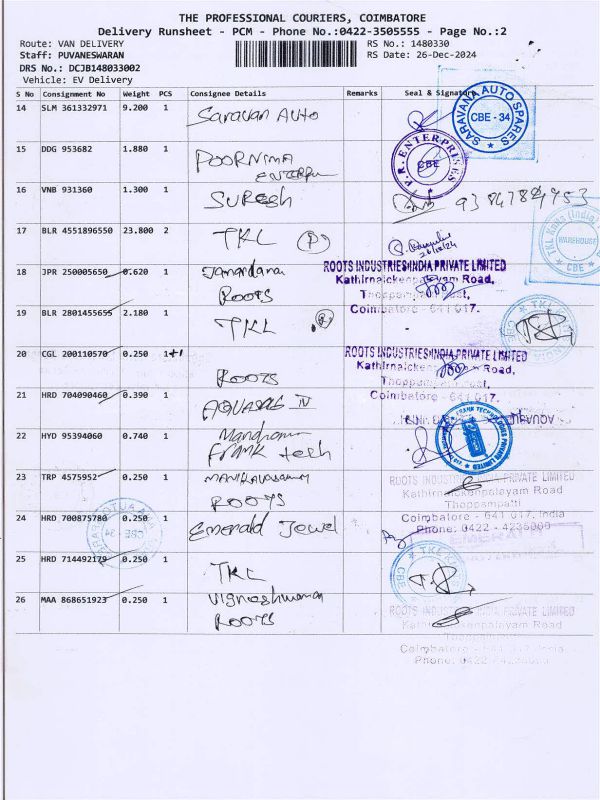 THE PROFESSIONAL COURIERS, COIMBATORE
Delivery Runsheet - PCM - Phone No.:0422-3505555 - Page No.:2
Route: VAN DELIVERY
RS No.: 1480330
Staff: PUVANESWARAN
RS Date: 26-Dec-2024
DRS No.: DCJB148033002
Vehicle: EV Delivery
S No Consignment No Weight PCS Consignee Details Remarks Seal & Signature
14 SLM 361332971 9.200 1 Saravan Auto
SARAVANA AUTO SPARES
CBE - 34
15 DDG 953682 1.880 1 POORNIMA
P.R. ENTERPRISES
CBE
16 VNB 931360 1.300 1 SURESH
17 BLR 4551896550 23.800 2 TKL (P)
26/12/24
WAREHOUSE
CBE
18 JPR 250005650 0.620 1 Janardana
ROOTS
ROOTS INDUSTRIES INDIA PRIVATE LIMITED
Kathirnaickenpalayam Road,
Thoppampatti Post,
Coimbatore - 641 017.
19 BLR 2801455655 2.180 1 TKL (P)
CBE
20 CGL 200110570 0.250 1+1
ROOTS
ROOTS INDUSTRIES INDIA PRIVATE LIMITED
Kathirnaickenpalayam Road,
Thoppampatti Post,
Coimbatore - 641 017.
21 HRD 704090460 0.390 1
AQUASUB
22 HYD 95394060 0.740 1
Frank tech
FRANK TECHNOLOGIES PRIVATE LIMITED
23 TRP 4575952 0.250 1 Manikavasagam
ROOTS
ROOTS INDUSTRIES INDIA PRIVATE LIMITED
Kathirnaickenpalayam Road
Thoppampatti
Coimbatore - 641 017, India
Phone: 0422 - 4235000
24 HRD 700875780 0.250 1 Emerald Jewel
CBE - 34
25 HRD 714492179 0.250 1
TKL
CBE
26 MAA 868651923 0.250 1 Vigneshwaran
ROOTS
ROOTS INDUSTRIES INDIA PRIVATE LIMITED
Kathirnaickenpalayam Road
Thoppampatti
Coimbatore - 641 017, India
Phone: 0422 - 4235000